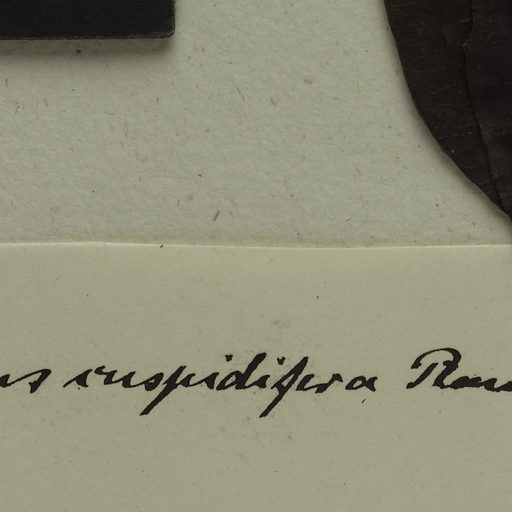 us cuspidifera Rau